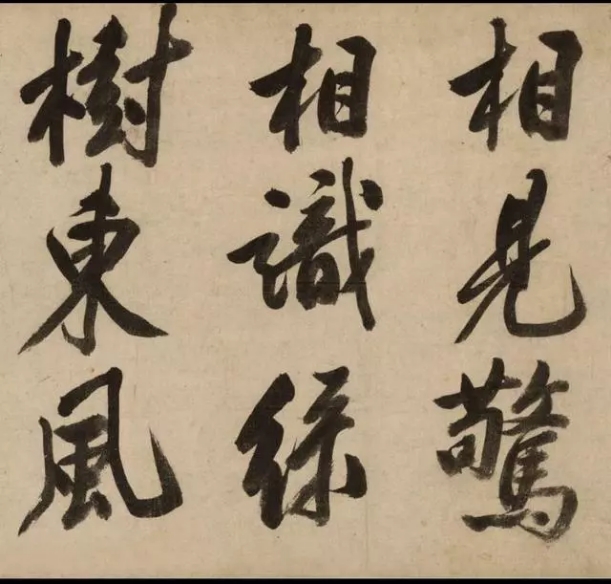 相見驚
相識綠
樹東風